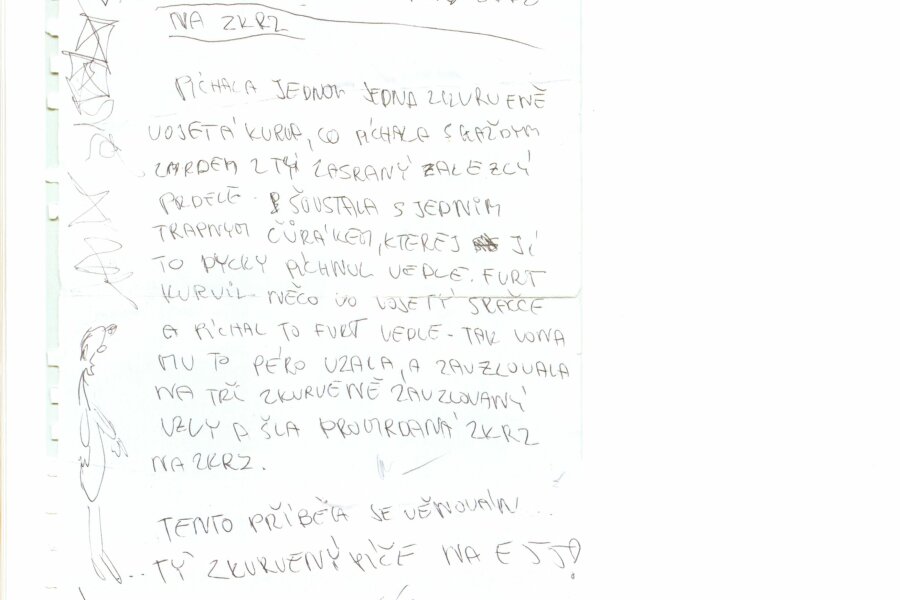 NA ZKRZ
PÍCHALA JEDNOU JEDNA ZKURVENĚ
VOJETÁ KURVA, CO PÍCHALA S KAŽDYM
ZMRDEM Z TÝ ZASRANÝ ZALEZLÝ
PRDELE. ŠOUSTALA S JEDNIM
TRAPNYM ČŮRÁKEM, KTEREJ JÍ
TO DYCKY PÍCHNUL VEDLE. FURT
KURVIL NĚCO VO VOJETÝ SRAČCE
A PÍCHAL TO FURT VEDLE - TAK VONA
MU TO PÉRO VZALA, A ZAUZLOVALA
NA TŘI ZKURVENĚ ZAUZLOVANÝ
UZLY A ŠLA PROMRDANÁ ZKRZ
NA ZKRZ.
TENTO PŘÍBĚH SE VĚNOVÁN...
...TÝ ZKURVENÝ PÍČE NA E JJ!